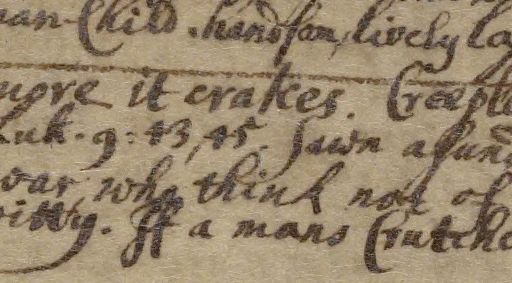 man-Child. handsom, lively la
more it crakes. Creeple
Luk. 9: 43, 45. Sawn asund
war who think not of
witty. If a mans Crutche